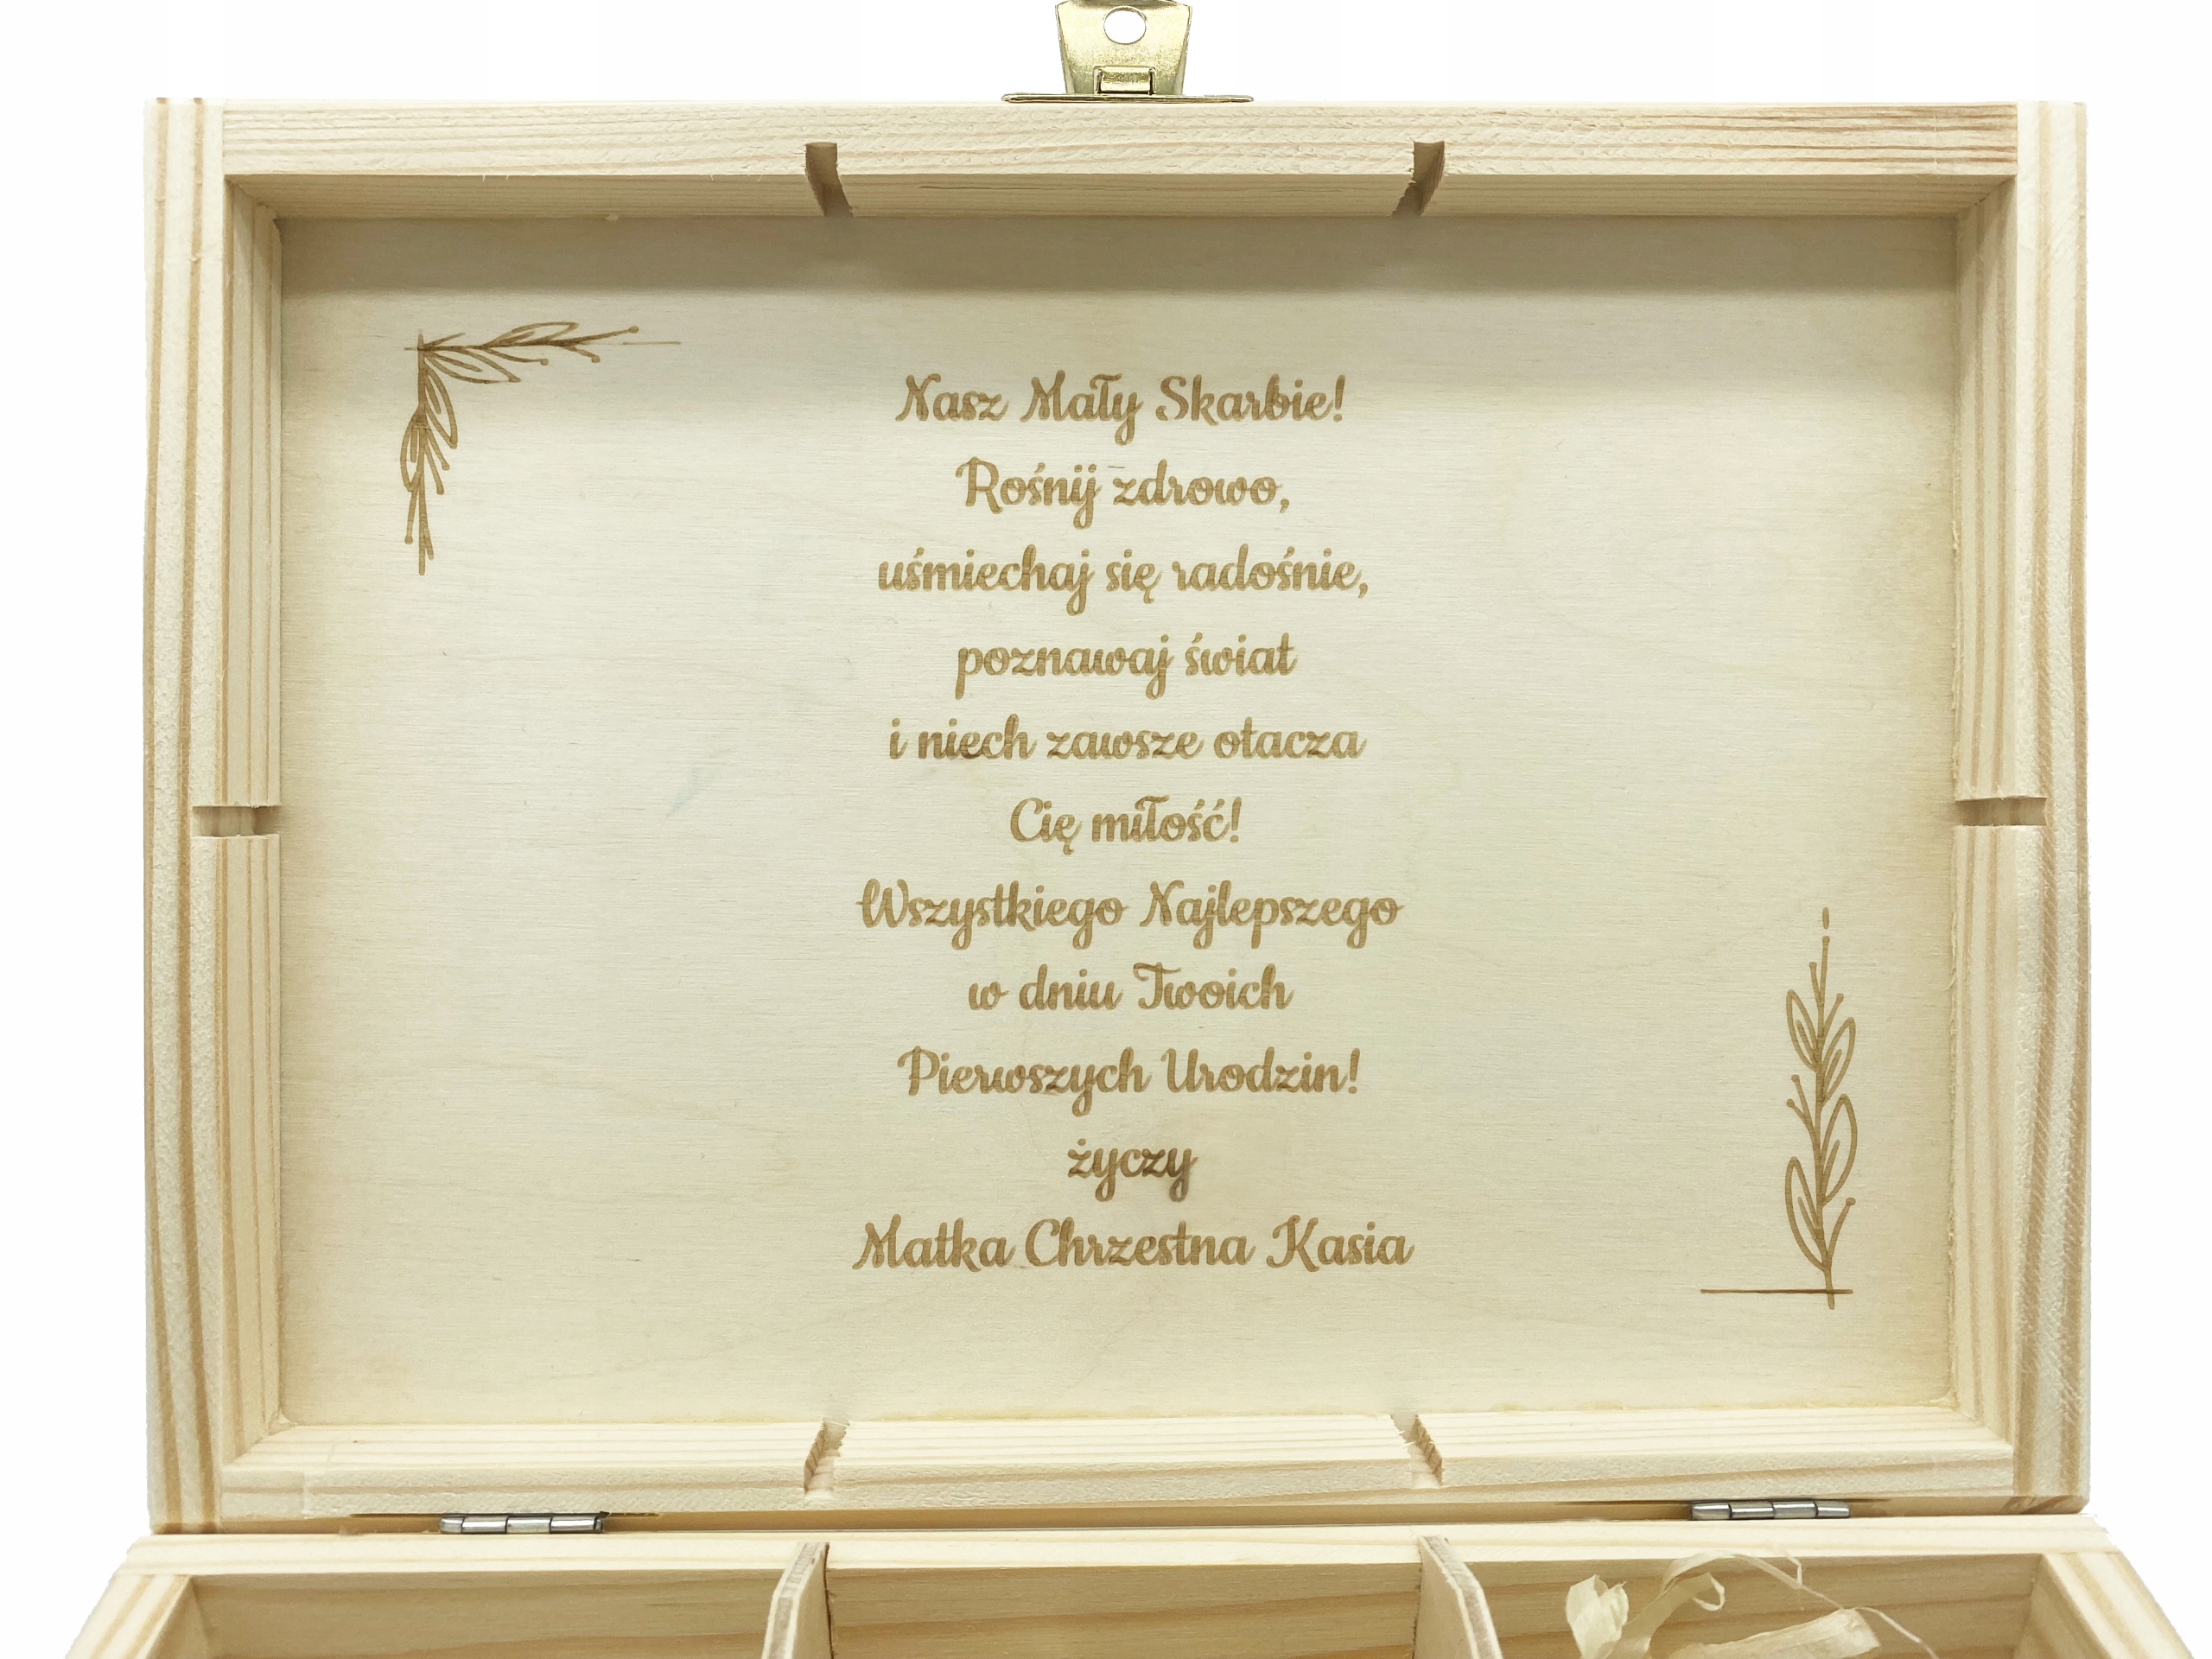 Nasz Mały Skarbie!
Rośnij zdrowo,
uśmiechaj się radośnie,
poznawaj świat
i niech zawsze otacza
Cię miłość!
Wszystkiego Najlepszego
w dniu Twoich
Pierwszych Urodzin!
życzy
Matka Chrzestna Kasia